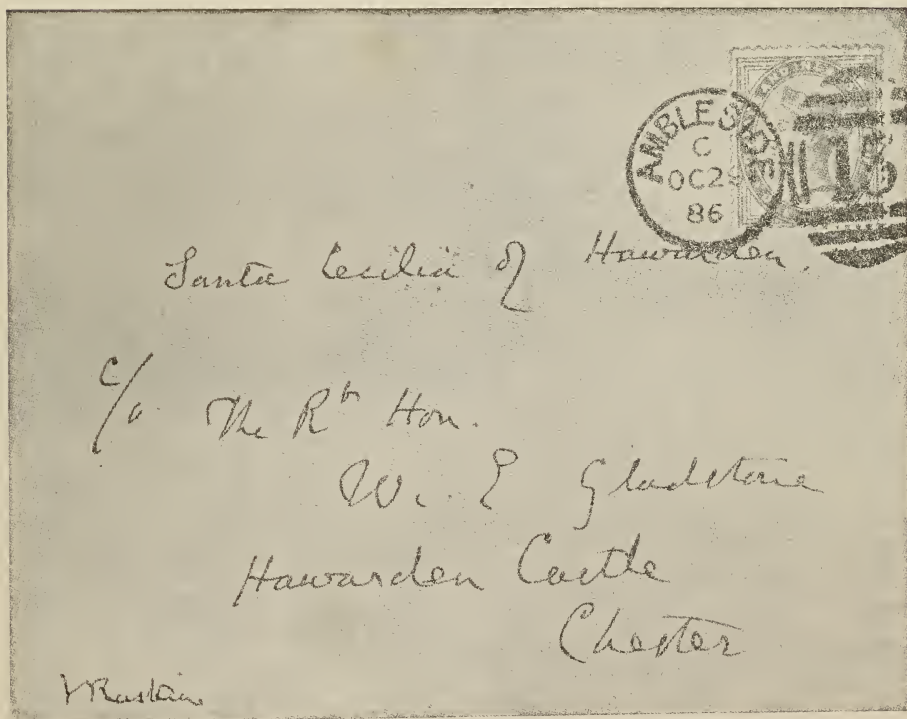 AMBLESIDE
C
OC29
86
15
Santa Cecilia of Hawarden.
c/o The Rt Hon.
W. E Gladstone
Hawarden Castle
Chester
J Ruskin